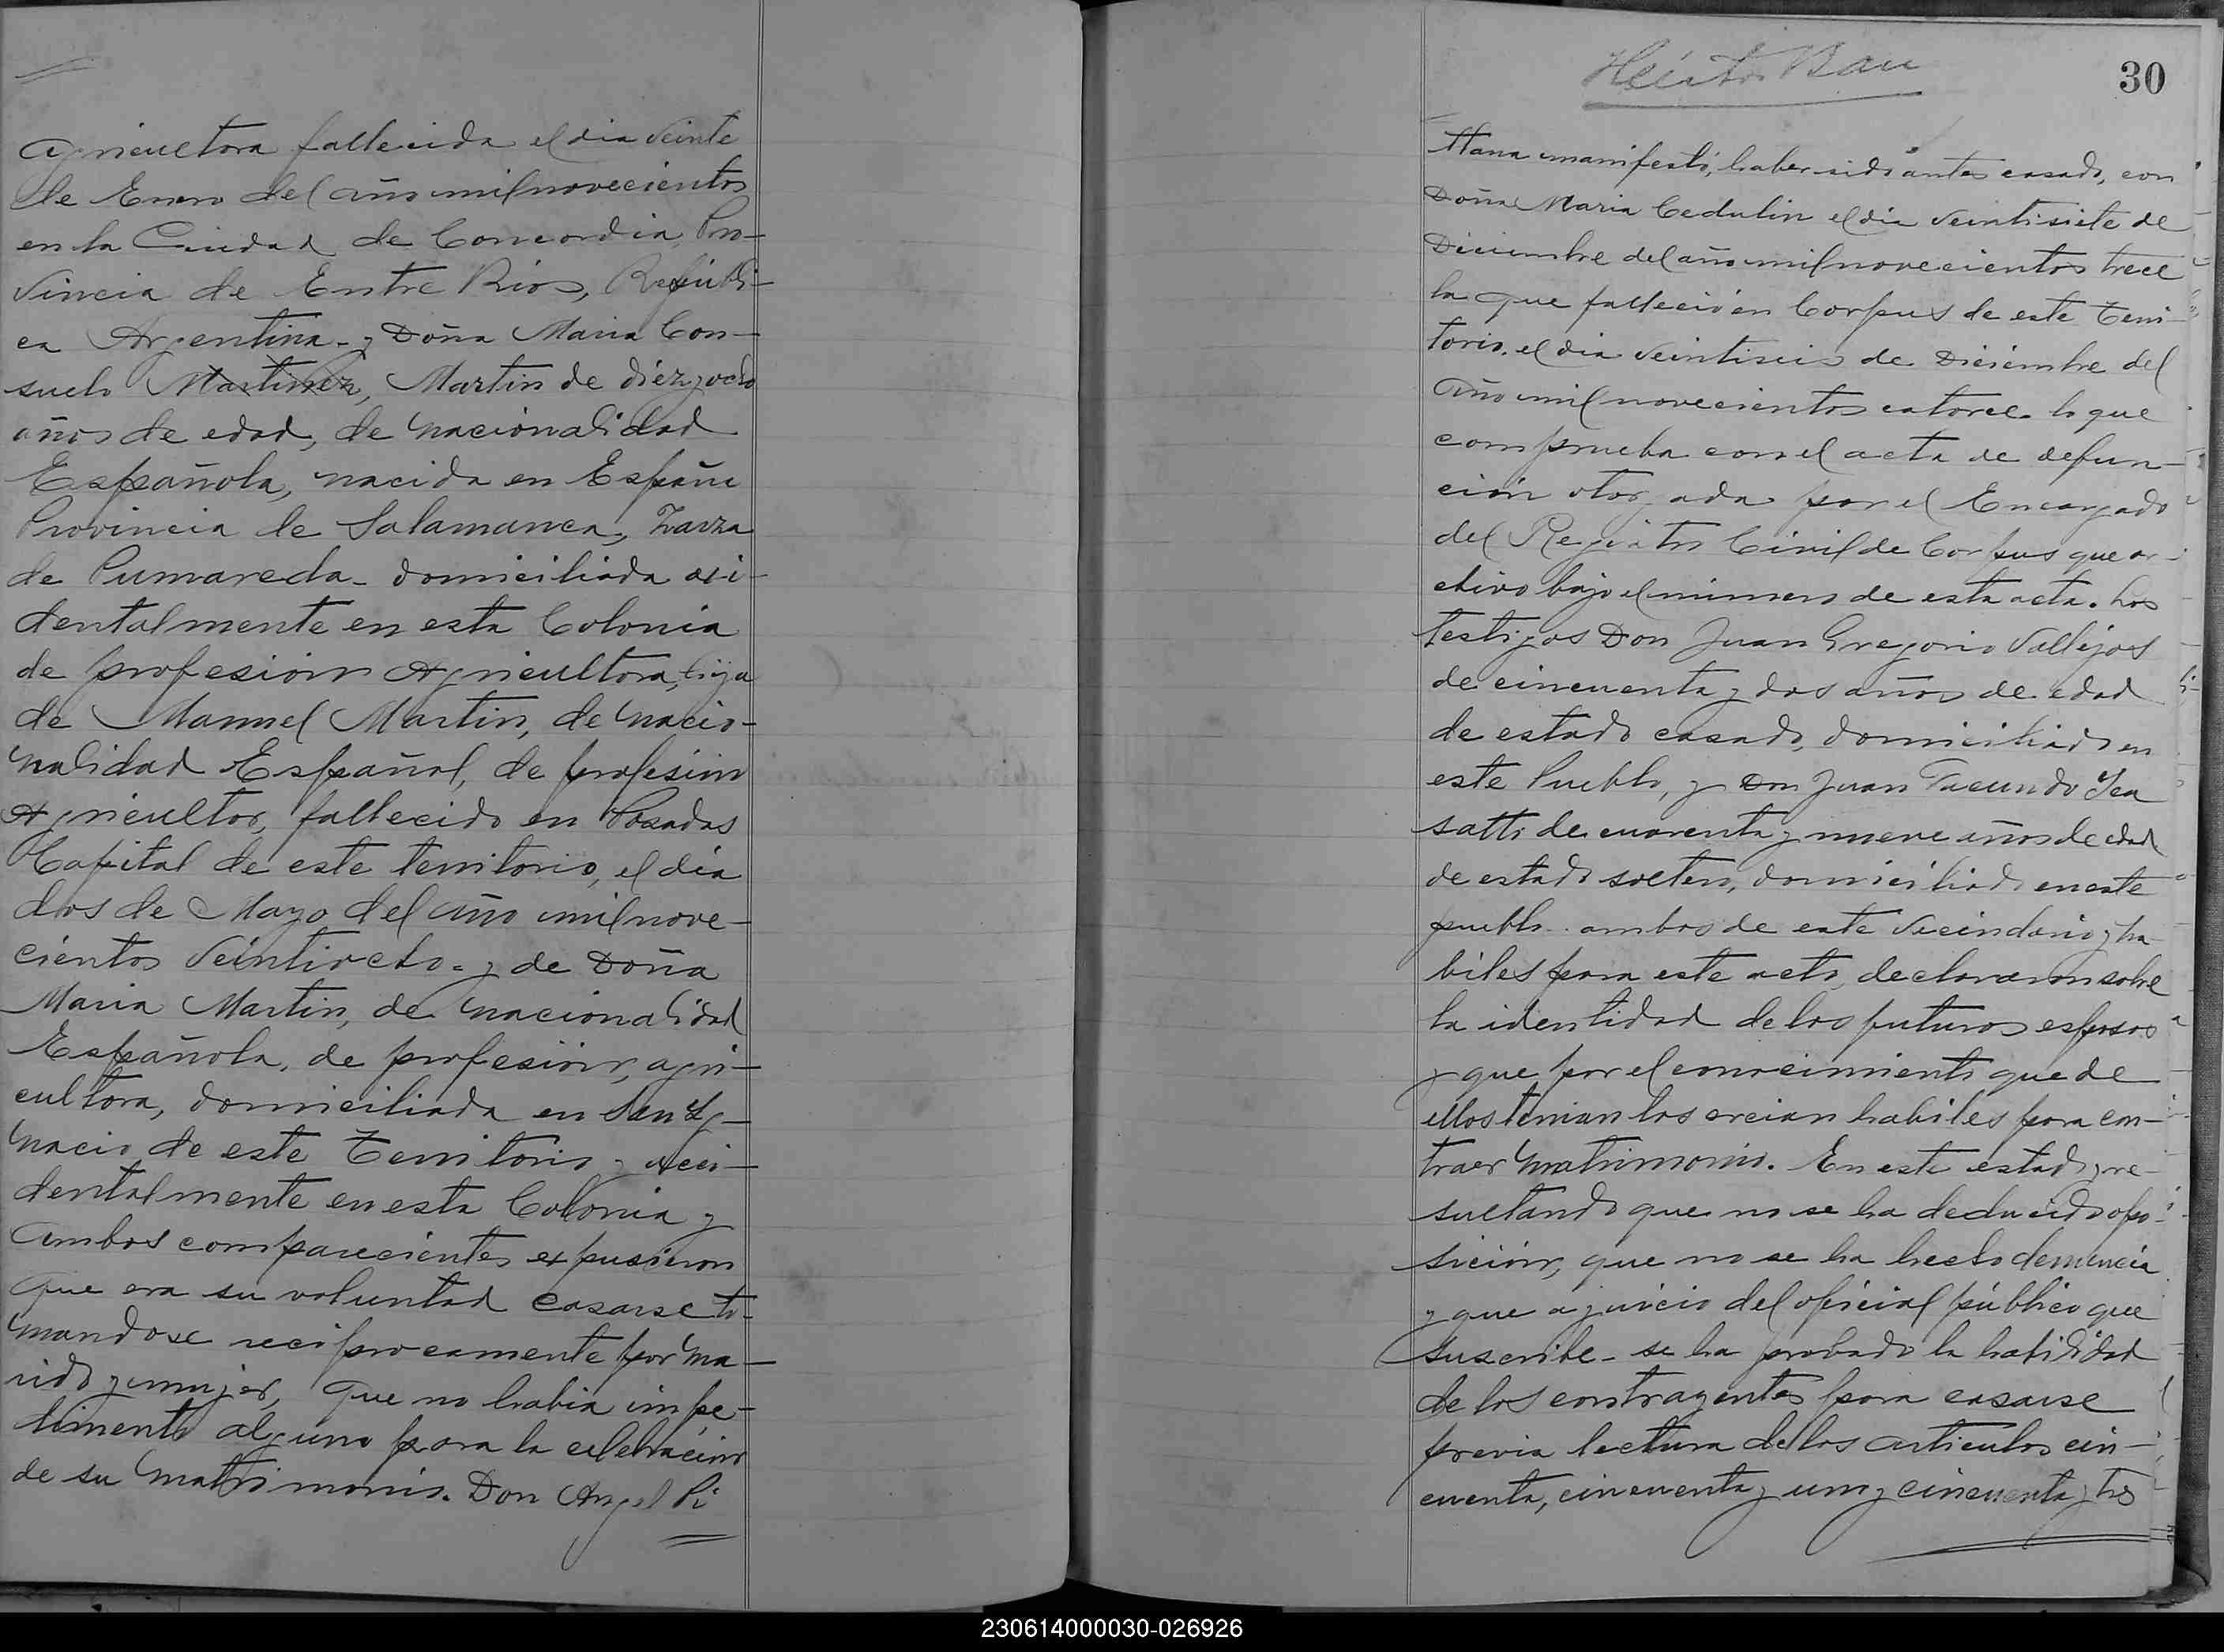 agricultora fallecida el dia veinte
de Enero del año mil novecientos
en la Ciudad de Concordia, Pro-
vincia de Entre Rios, Repúbli-
ca Argentina. y Doña Maria Con-
suelo Martinez, Martin de diez y ocho
años de edad, de nacionalidad
Española, nacida en España
Provincia de Salamanca, Zarza
de Pumareda - domiciliada axi-
dentalmente en esta Colonia
de profesión Agricultora, hija
de Manuel Martin, de nacio-
nalidad Español, de profesión
Agricultor, fallecido en Posadas
Capital de este territorio, el dia
dos de Mayo del año mil nove-
cientos veintiocho - y de Doña
Maria Martin, de nacionalidad
Española, de profesión, agri-
cultora, domiciliada en San Ig-
nacio de este Territorio y acci-
dentalmente en esta Colonia y
ambos comparecientes expusieron
que era su voluntad casarse to-
mandose reciprocamente por ma-
rido y mujer, que no habia impe-
dimento alguno para la celebración
de su matrimonio. Don Angel Pi
30
ttana manifestó, haber sido antes casado, con
Doña Maria Cedulin el dia veintisiete de
Diciembre del año mil novecientos trece
la que falleció en Corpus de este Terri-
torio, el dia veintiseis de Diciembre del
año mil novecientos catorce - lo que
comprueba con el acta de defun-
ción otorgada por el Encargado
del Registro Civil de Corpus que ar-
chivo bajo el número de esta acta. Los
testigos Don Juan Gregorio Vallejos
de cincuenta y dos años de edad
de estado casado, domiciliado en
este Pueblo, y Don Juan Facundo
de cuarenta y nueve años de edad
de estado soltero, domiciliado en este
pueblo - ambos de este vecindario y ha-
biles para este acto, declararon sobre
la identidad de los futuros esposos
y que por el conocimiento que de
ellos tenian los creian habiles para con-
traer matrimonio. En este estado y re-
sultando que no se ha deducido opo-
sición, que no se ha hecho denuncia
y que a juicio del oficial público que
suscribe - se ha probado la habilidad
de los contrayentes para casarse
previa lectura de los articulos cin-
cuenta, cincuenta y uno y cincuenta y tres
230614000030-026926